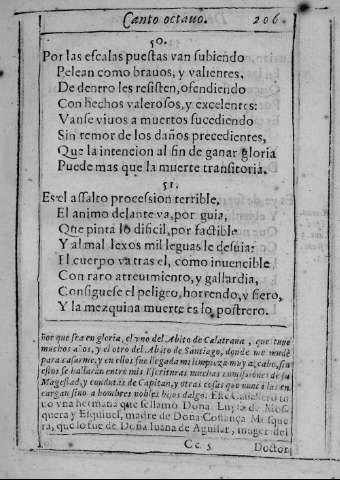 Canto octauo. 206
50.
Por las escalas puestas van subiendo
Pelean como brauos, y valientes,
De dentro les resisten, ofendiendo
Con hechos valerosos, y excelentes:
Vanse viuos a muertos sucediendo
Sin temor de los daños precedientes,
Que la intencion al fin de ganar gloria
Puede mas que la muerte transitoria.
51.
Es el assalto procession terrible,
El animo delante va, por guia,
Que pinta lo dificil, por factible
Y al mal lexos mil leguas le desuia:
El cuerpo va tras el, como inuencible
Con raro atreuimiento, y gallardia,
Consiguese el peligro, horrendo, y fiero,
Y la mezquina muerte es lo postrero.
por que sea en gloria, el vno del Abito de Calatraua, que tuuo
muchos años, y el otro del Abito de Santiago, donde me mudè
para casarme, y en ellos fue llegada mi limpieza muy a cabo, sin
estos se hallaran entre mis Escrituras muchas comissiones de su
Magestad, y conductas de Capitan, y otras cosas que nunca las en
cargan sino a hombres nobles hijos dalgo. Este Cauallero tu
uo vna hermana que se llamò Doña Luysa de Mos
quera y Esquiuel, madre de Doña Costança Mosque
ra, que lo fue de Doña Iuana de Aguilar, muger del
Cc 5 Doctor